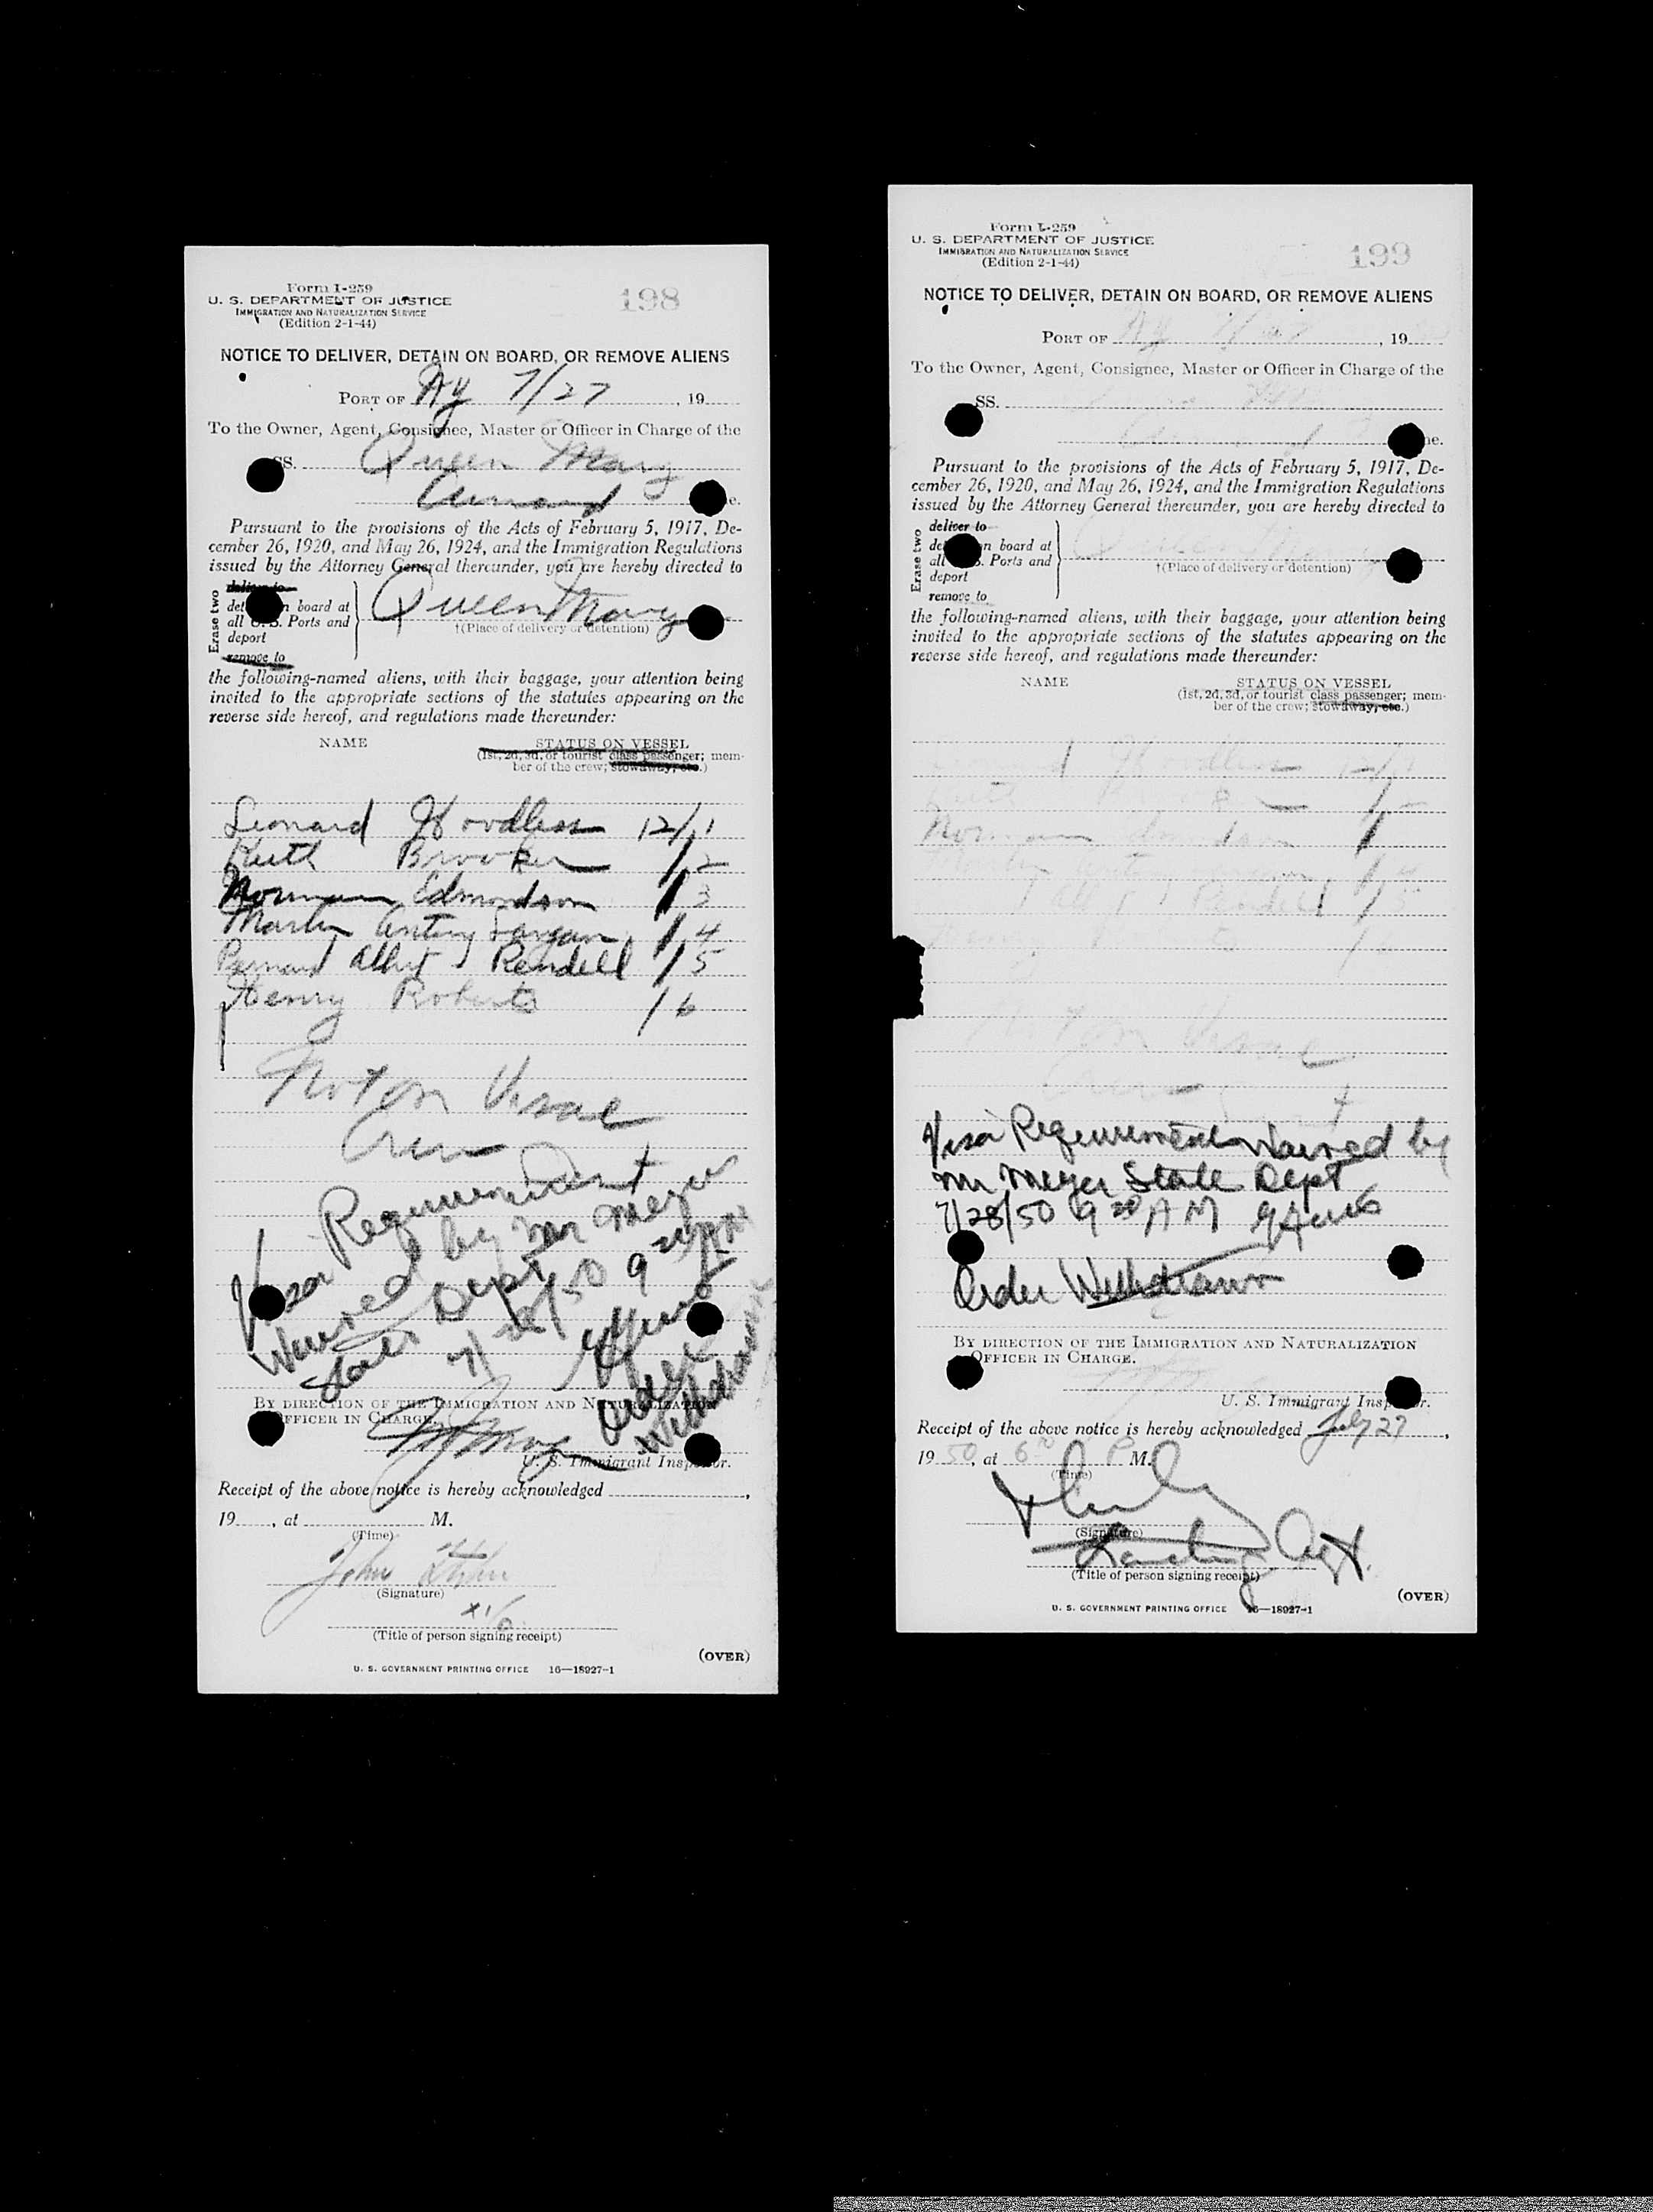 Form I-259
U. S. DEPARTMENT OF JUSTICE
IMMIGRATION AND NATURALIZATION SERVICE
(Edition 2-1-44)
198
NOTICE TO DELIVER, DETAIN ON BOARD, OR REMOVE ALIENS
PORT OF Ny 7/27, 19
To the Owner, Agent, Consignee, Master or Officer in Charge of the
SS. Queen Mary
Cunard
Pursuant to the provisions of the Acts of February 5, 1917, De-
cember 26, 1920, and May 26, 1924, and the Immigration Regulations
issued by the Attorney General thereunder, you are hereby directed to
Erase two
deliver to
det n board at
all U.S. Ports and
deport
remove to
Queen Mary
†(Place of delivery or detention)
the following-named aliens, with their baggage, your attention being
invited to the appropriate sections of the statutes appearing on the
reverse side hereof, and regulations made thereunder:
NAME STATUS ON VESSEL
(1st, 2d, 3d, or tourist class passenger; mem-
ber of the crew; stowaway, etc.)
Leonard Woodless 12/1
Ruth Brooker /2
Norman Edmondson /3
Martin Antony /4
Bernard Albert J Rendell /5
Henry Roberts /6
Not on Visae
Crew
Visa Requirement
Waived by Mr Meyer
State Dept
7/28/50 9 20 AM
Order
Withdrawn
BY DIRECTION OF THE IMMIGRATION AND NATURALIZATION
OFFICER IN CHARGE.
U. S. Immigrant Inspector.
Receipt of the above notice is hereby acknowledged ,
19 , at M.
(Time)
John
(Signature)
(Title of person signing receipt)
(OVER)
U. S. GOVERNMENT PRINTING OFFICE 16—18927-1
Form I-259
U. S. DEPARTMENT OF JUSTICE
IMMIGRATION AND NATURALIZATION SERVICE
(Edition 2-1-44)
199
NOTICE TO DELIVER, DETAIN ON BOARD, OR REMOVE ALIENS
PORT OF Ny 7/27, 19
To the Owner, Agent, Consignee, Master or Officer in Charge of the
SS.
ne.
Pursuant to the provisions of the Acts of February 5, 1917, De-
cember 26, 1920, and May 26, 1924, and the Immigration Regulations
issued by the Attorney General thereunder, you are hereby directed to
Erase two
deliver to
de n board at
all S. Ports and
deport
remove to
Queen Mary
†(Place of delivery or detention)
the following-named aliens, with their baggage, your attention being
invited to the appropriate sections of the statutes appearing on the
reverse side hereof, and regulations made thereunder:
NAME STATUS ON VESSEL
(1st, 2d, 3d, or tourist class passenger; mem-
ber of the crew; stowaway, etc.)
Norman Edmondson
Rendell /5
Visae
Visa Requirement Waived by
Mr Meyer State Dept
7/28/50 9 20 AM
Order Withdrawn
BY DIRECTION OF THE IMMIGRATION AND NATURALIZATION
OFFICER IN CHARGE.
U. S. Immigrant Inspector.
Receipt of the above notice is hereby acknowledged July 27,
19 50, at 6 P M.
(Time)
(Signature)
Landing Agt.
(Title of person signing receipt)
(OVER)
U. S. GOVERNMENT PRINTING OFFICE 16—18927-1